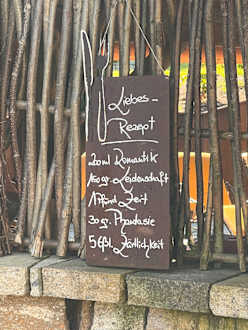 Liebes-
Rezept
20ml Romantik
150gr. Leidenschaft
1 Pfund Zeit
30gr. Phantasie
5 Eßl. Zärtlichkeit